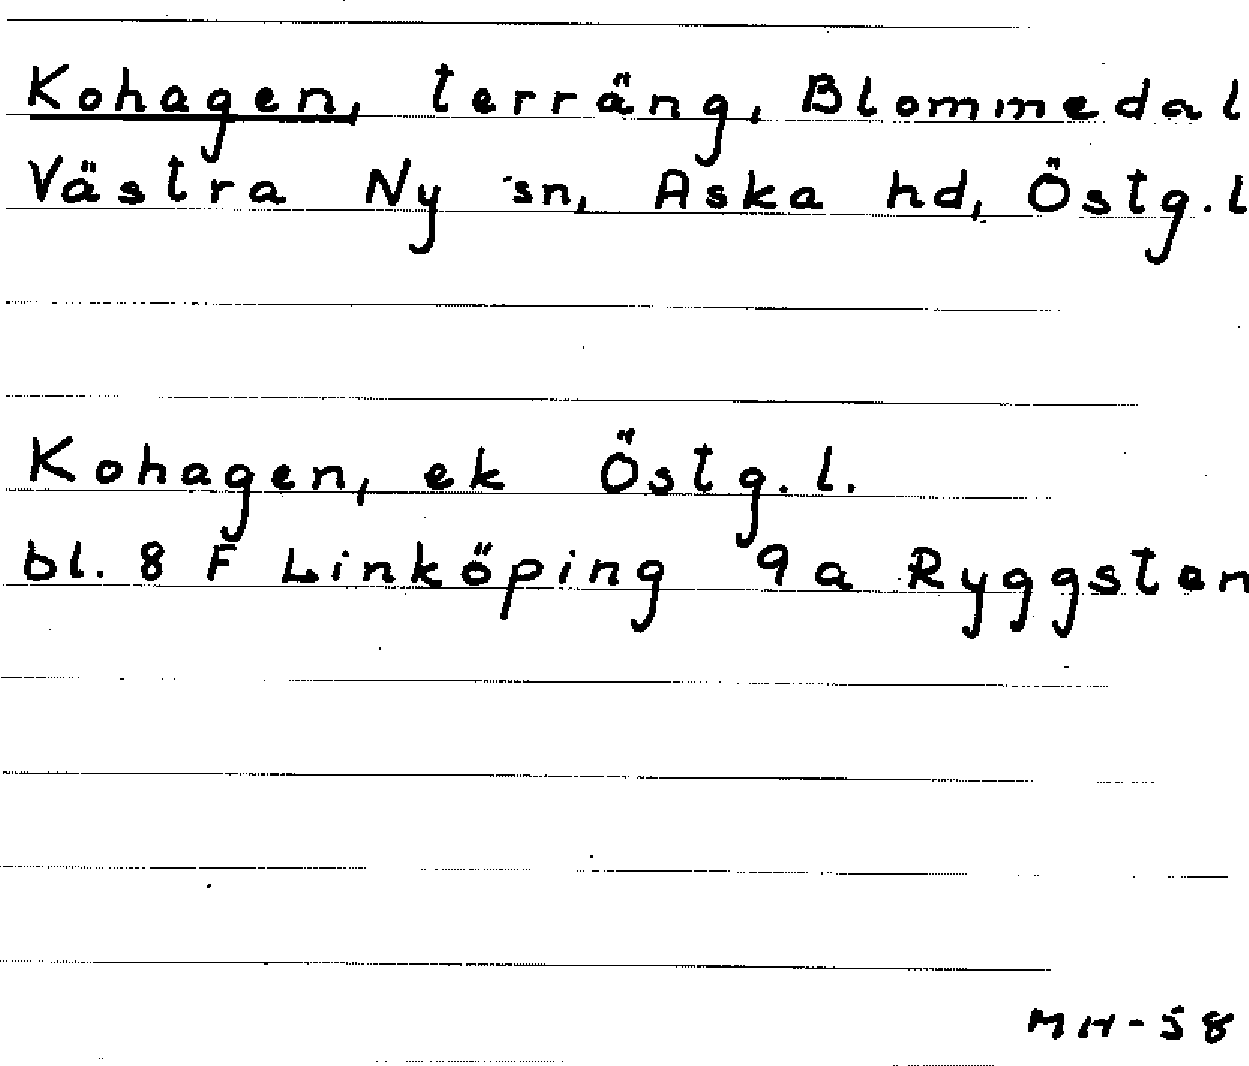 Kohagen, terräng, Blommedal
Västra Ny sn, Aska hd, Östg.l
Kohagen, ek Östg.l.
bl. 8 F Linköping 9a Ryggsten
MH-58